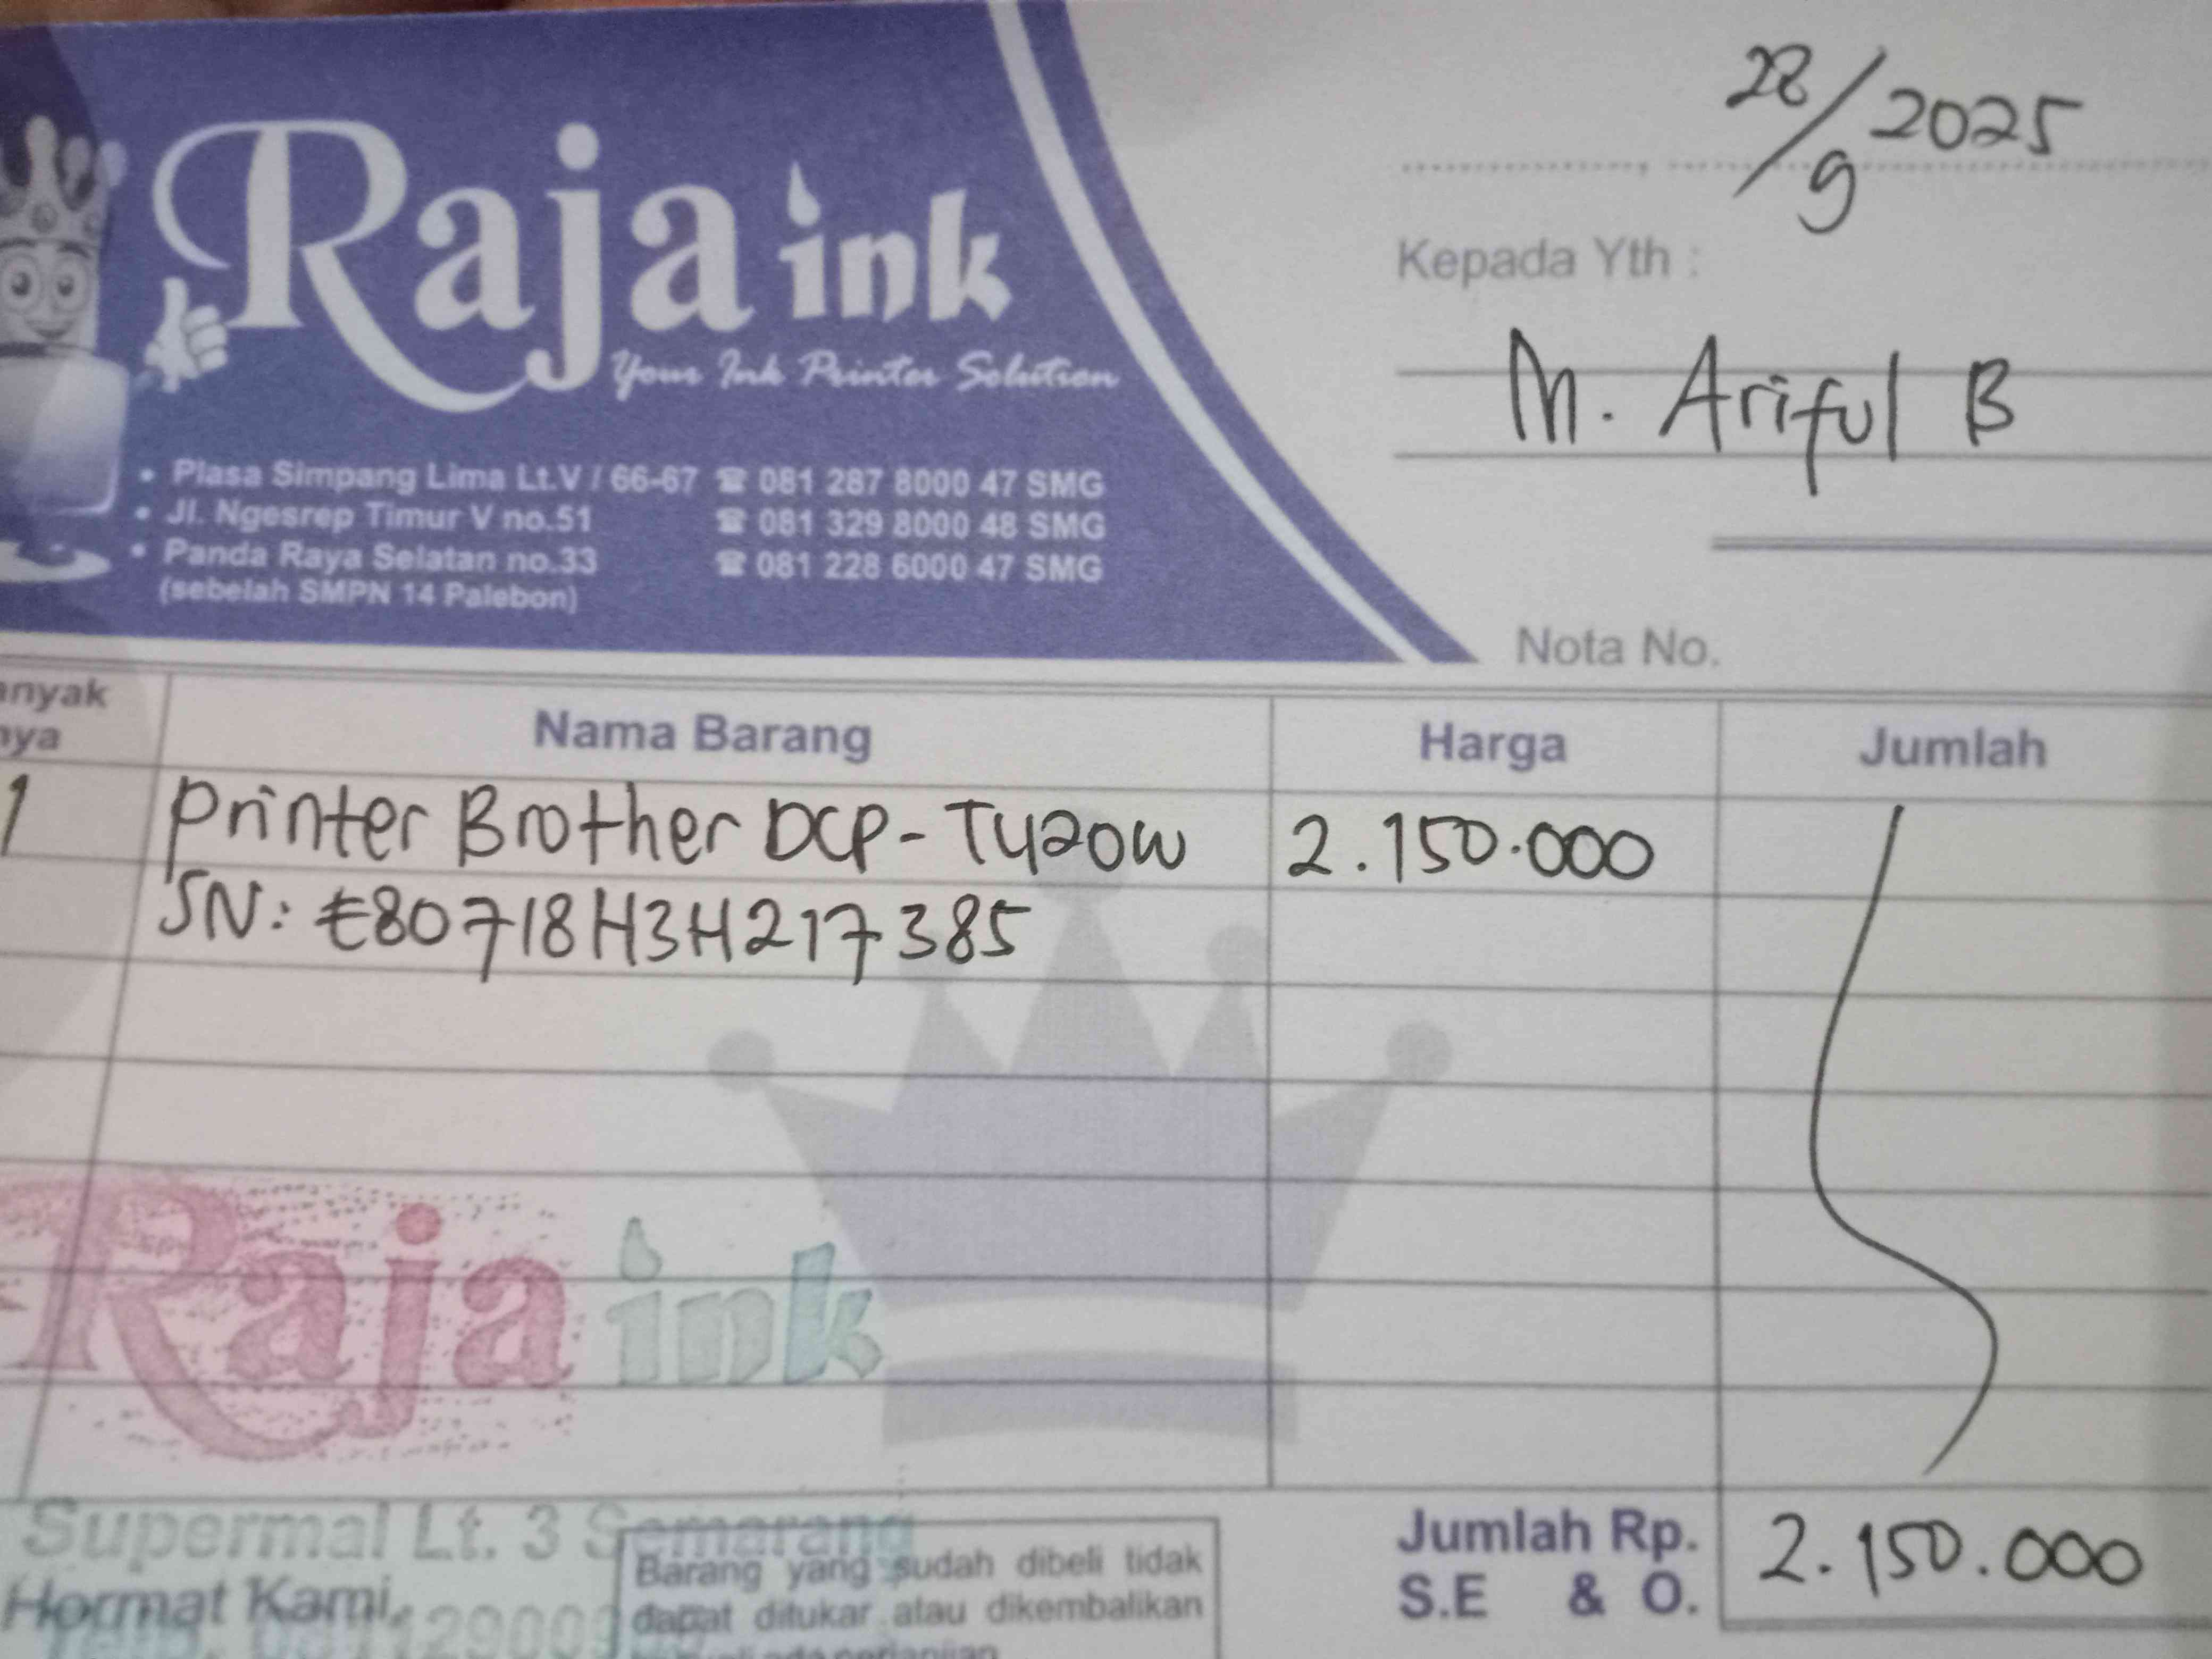 Raja ink
Your Ink Printer Solution
• Plasa Simpang Lima Lt.V / 66-67 ☎ 081 287 8000 47 SMG
• Jl. Ngesrep Timur V no.51 ☎ 081 329 8000 48 SMG
• Panda Raya Selatan no.33 ☎ 081 228 6000 47 SMG
(sebelah SMPN 14 Palebon)
28/9 2025
Kepada Yth :
M. Ariful B
Nota No.
anyak
nya
Nama Barang Harga Jumlah
1 Printer Brother DCP-T420W 2.150.000
SN: E80718H3H217385
Raja ink
Supermal Lt. 3 Semarang
Hormat Kami,
Barang yang sudah dibeli tidak
dapat ditukar atau dikembalikan
Jumlah Rp. 2.150.000
S.E & O.